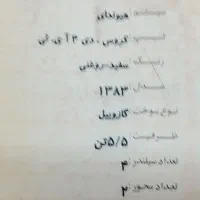 سیستم: هیوندای
تیپ: کروس . دی ۴ آ ی. تی
رنگ: سفید-روغنی
مدل: ۱۳۸۳
نوع سوخت: گازوییل
ظرفیت: ۵/۵ تن
تعداد سیلندر: ۴
تعداد محور: ۲